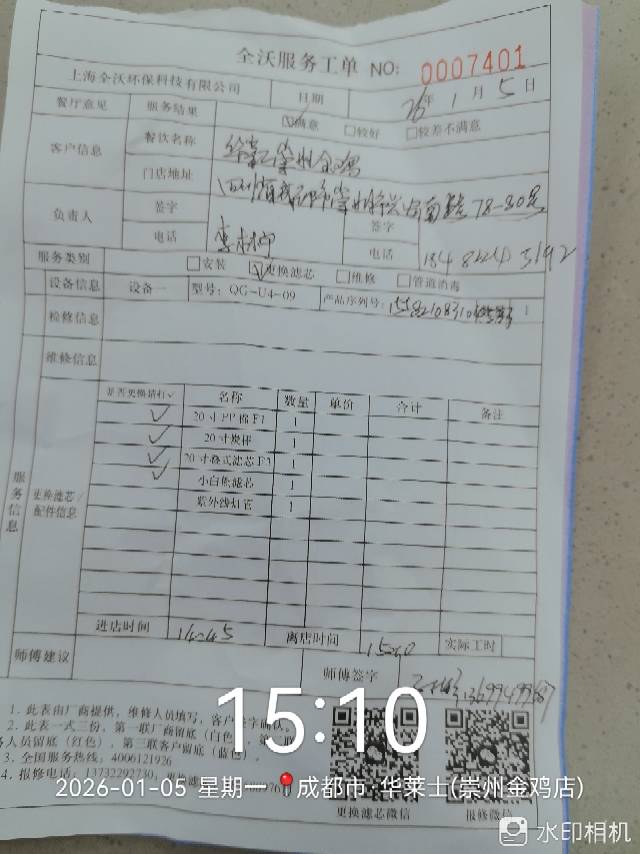 全沃服务工单 NO: 0007401
上海全沃环保科技有限公司 日期 26年 1月 5日
餐厅意见 服务结果 ☑满意 □较好 □较差不满意
客户信息 餐饮名称
门店地址 78-80号
负责人 签字 签字
电话 电话
服务类别 □安装 ☑更换滤芯 □维修 □管道消毒
设备信息 设备一 型号: QG-U4-09 产品序列号:
检修信息
维修信息
服务信息
更换滤芯/配件信息
是否更换请打✓ 名称 数量 单价 合计 备注
✓ 20寸PP棉F1 1
✓ 20寸炭棒 1
✓ 20寸叠式滤芯F3 1
✓ 小白熊滤芯 1
紫外线灯管 1
进店时间 14:45 离店时间 实际工时
师傅建议 师傅签字
1. 此表由厂商提供，维修人员填写，客户签字确认。
2. 此表一式三份，第一联厂商留底（白色）
人员留底（红色），第三联客户留底（蓝色）
3. 全国服务热线: 4006121926
4. 报修电话: 13732292730
更换滤芯微信 报修微信
15:10
2026-01-05 星期一 成都市·华莱士(崇州金鸡店)
水印相机